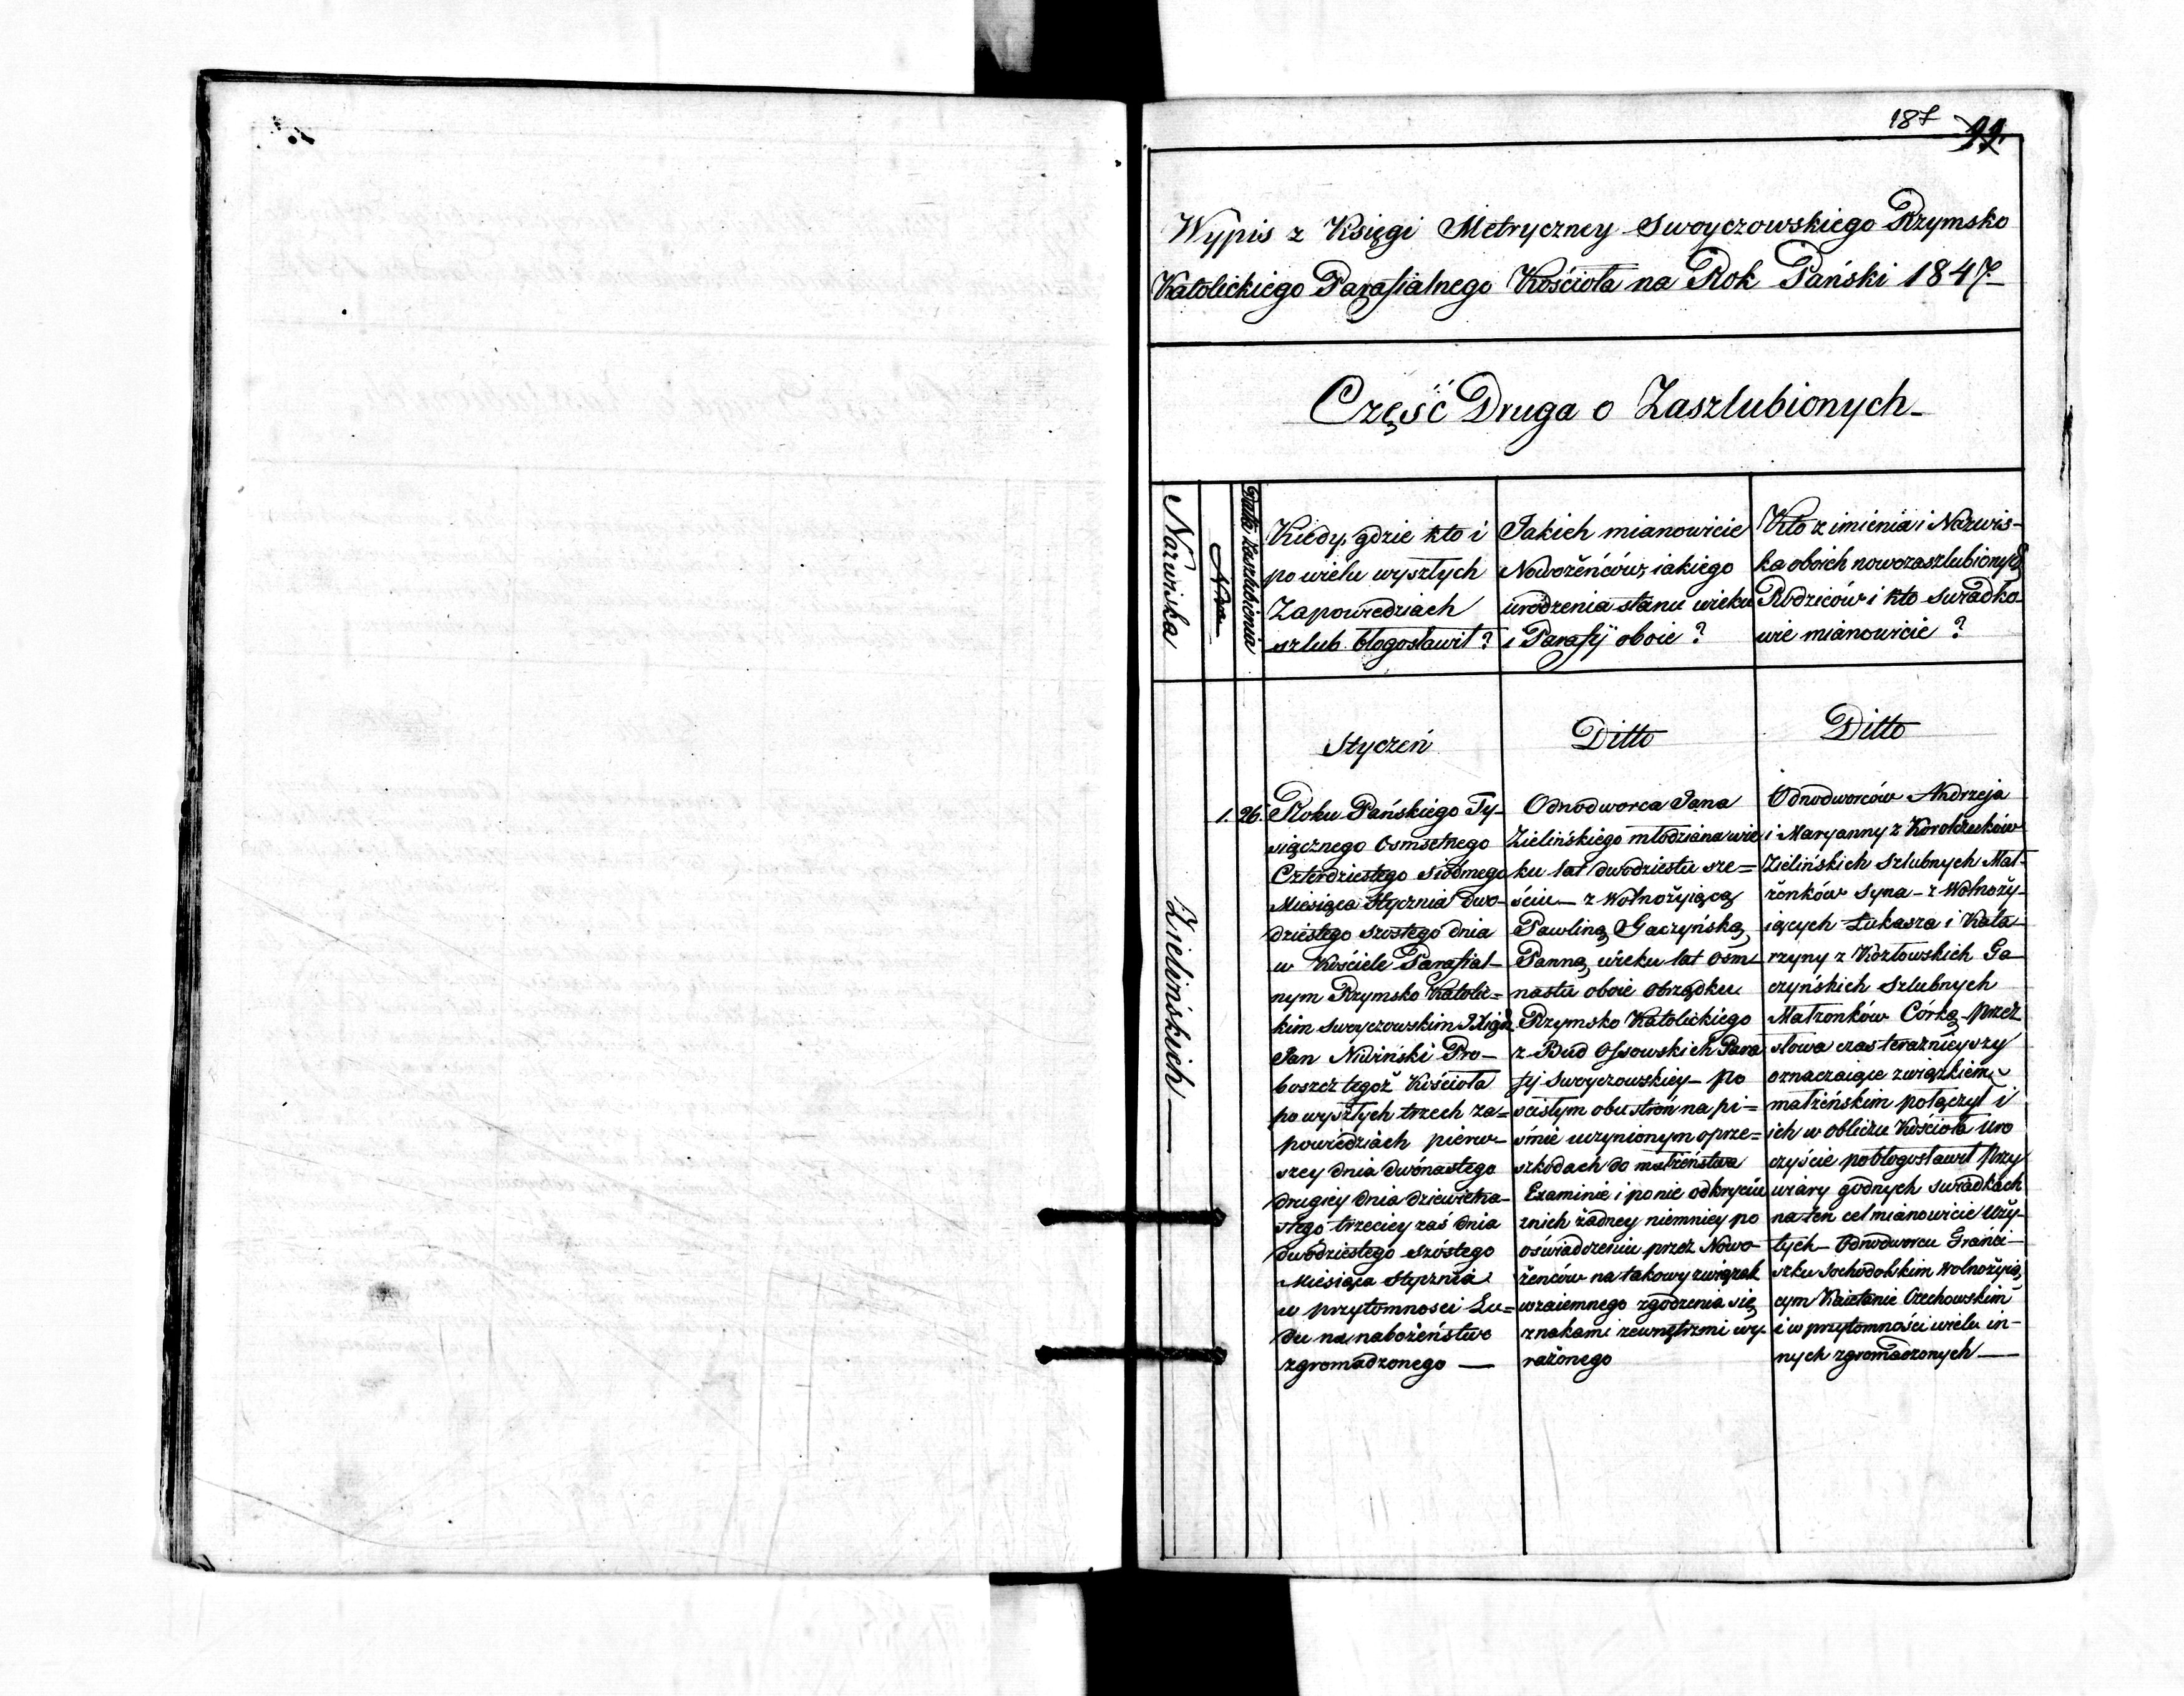 187 99.
Wypis z Księgi Metryczney Swoyczowskiego Rzymsko
Katolickiego Parafialnego Kościoła na Rok Pański 1847.
Część Druga o Zaszlubionych
Nazwiska
Nra
Data Zaszlubienia
Kiedy, gdzie kto i
po wielu wyszłych
Zapowiedziach
szlub błogosławił?
Jakich mianowicie
Nowożeńców, iakiego
urodzenia stanu wieku
i Parafij oboie?
Kto z imienia i Nazwis-
ka oboich nowozaszlubionych
Rodziców i kto swiadko-
wie mianowicie?
Styczeń
Ditto
Ditto
Zielińskich
1. 26.
Roku Pańskiego Ty-
siącznego Osmsetnego
Czterdziestego siódmego
Miesiąca Stycznia dwo-
dziestego szostego dnia
w Kościele Parafial-
nym Rzymsko Katolic=
kim Swoyczowskim
Jan Niwiński Pro-
boszcz tegoż Kościoła
po wyszłych trzech za=
powiedziach pierw-
szey dnia dwónastego
drugiey dnia dziewietna-
stego trzeciey zaś dnia
dwódziestego szóstego
Miesiąca Stycznia
w przytomnosci Lu=
du na nabożeństwo
zgromadzonego —
Odnodworca Jana
Zielińskiego młodziana wie
ku lat dwodziestu sze=
ściu — z Wolnożyiącą
Pawliną Gaczyńską
Panną, wieku lat osm
nastu oboie Obrządku
Rzymsko Katolickiego
z Bud Ossowskich Para
fij Swoyczowskiey — po
scisłym obu stron na pi=
śmie uczynionym o prze=
szkodach do małżeństwa
Examinie i po nie odkryciu
znich żadney niemniey po
oświadczeniu przez Nowo-
żeńców na takowy związek
wzaiemnego zgodzenia się
znakami zewnętrzmi wy-
rażonego
Odnodworców Andrzeja
i Maryanny z Korolczuków
Zielińskich Szlubnych Mał-
żenków Syna — z Wolnoży-
iących Łukasza i Kata-
rzyny z Kozłowskich Ga-
czyńskich Szlubnych
Małżonków Córką — przez
słowa czas teraznieyszy
oznaczaiące związkiem
małżeńskim połączył i
ich w obliczu Kościoła uro
czyście pobłogosławił przy
wiary godnych swiadkach
na ten cel mianowicie uży-
tych — Odnodworcu Franci-
szku Sochodolskim Wolnożyią
cym Kaietanie Orzechowskim
i w przytomności wielu in-
nych zgromadzonych —